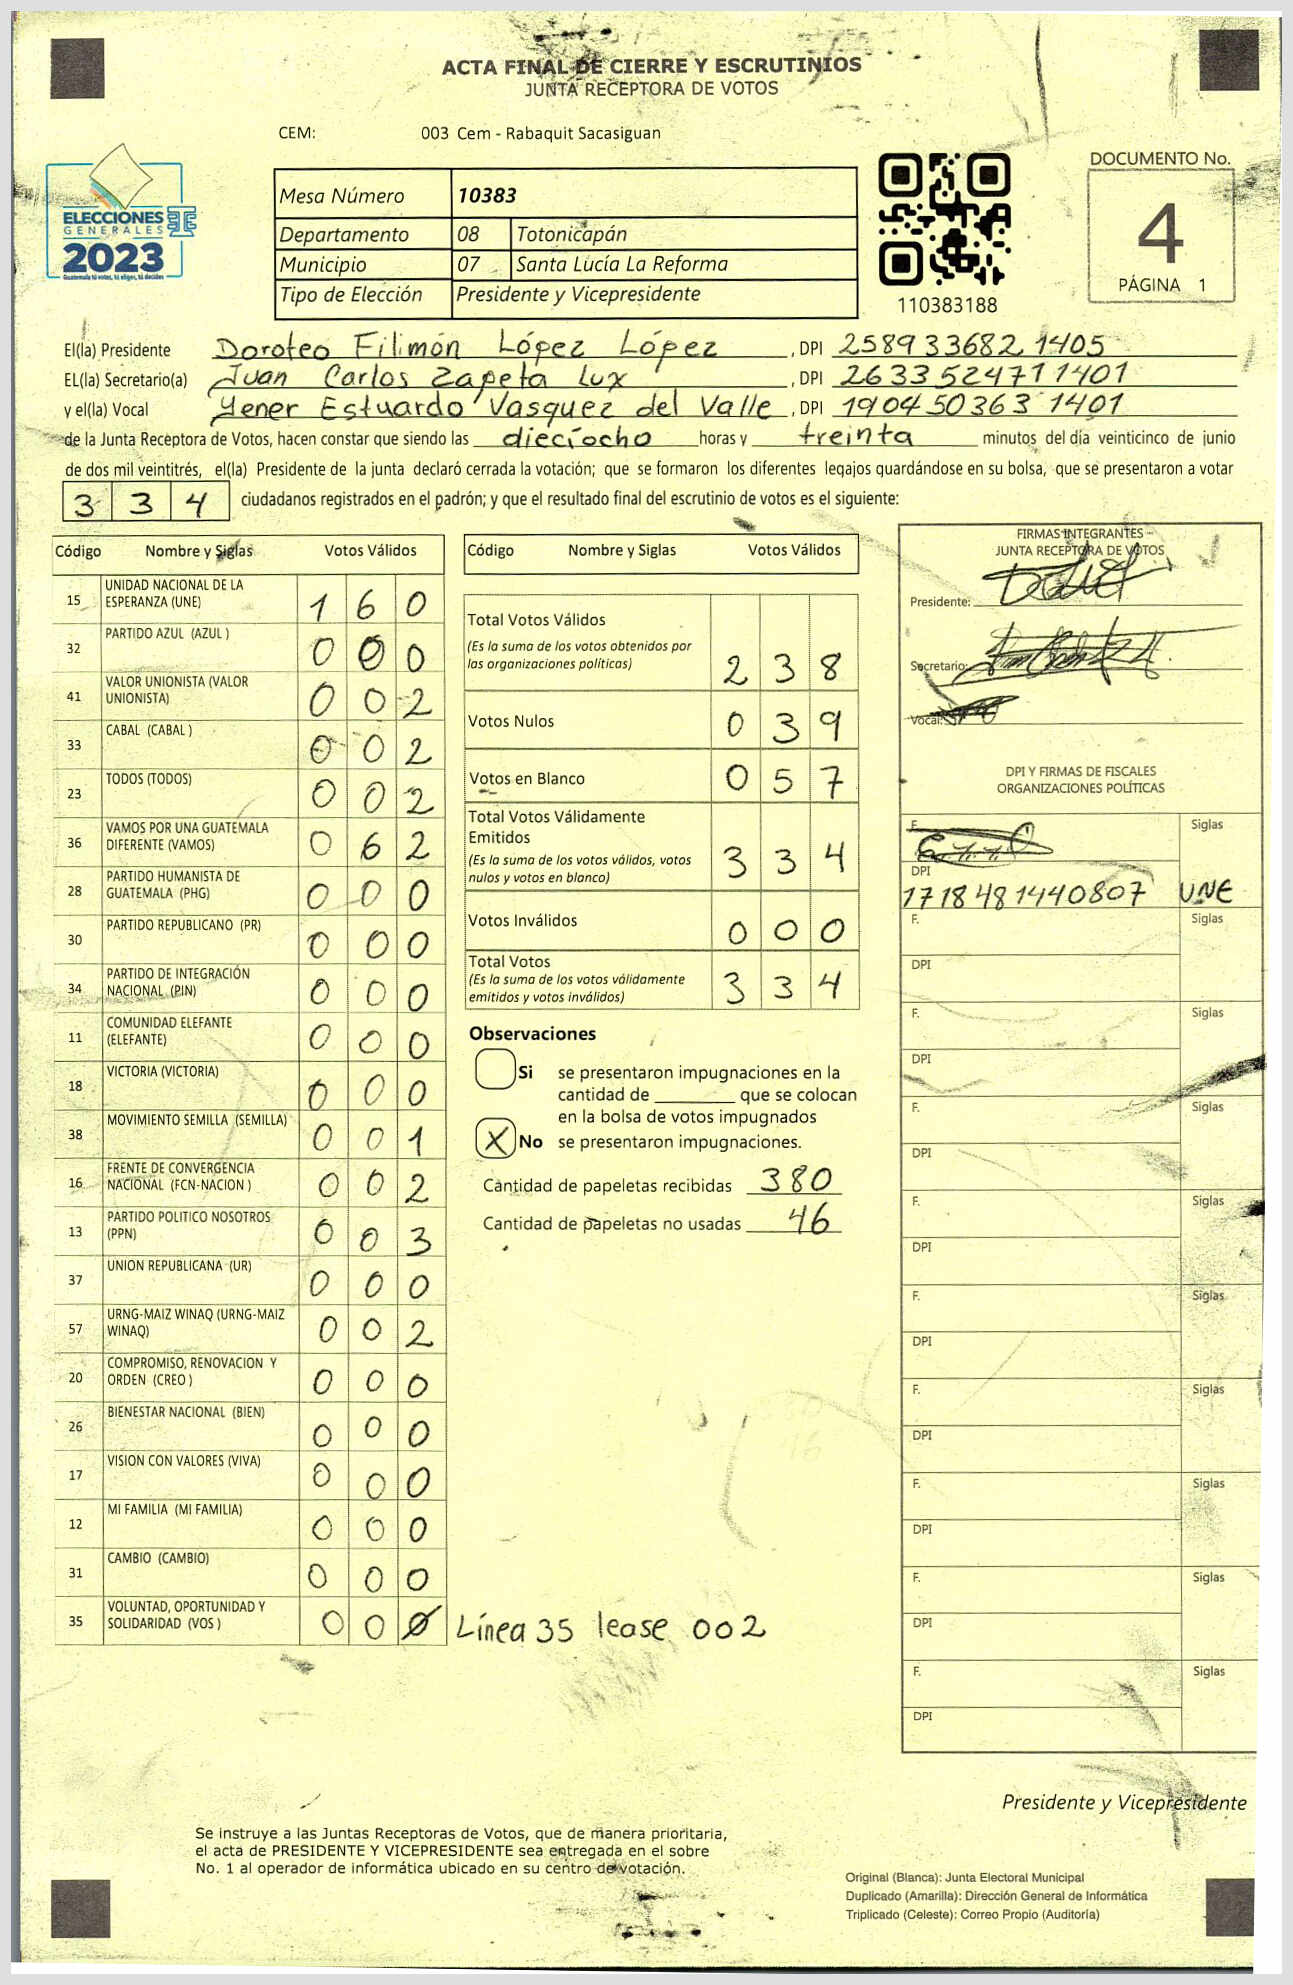 ACTA FINAL DE CIERRE Y ESCRUTINIOS
JUNTA RECEPTORA DE VOTOS
CEM: 003 Cem - Rabaquit Sacasiguan
ELECCIONES
GENERALES
2023
Guatemala tú votas, tú eliges, tú decides
Mesa Número 10383
Departamento 08 Totonicapán
Municipio 07 Santa Lucía La Reforma
Tipo de Elección Presidente y Vicepresidente
110383188
DOCUMENTO No.
4
PÁGINA 1
El(la) Presidente Doroteo Filimón López López , DPI 258933682 1405
EL(la) Secretario(a) Juan Carlos Zapeta Lux , DPI 2633524711401
y el(la) Vocal Yener Estuardo Vasquez del Valle , DPI 190450363 1401
de la Junta Receptora de Votos, hacen constar que siendo las dieciocho horas y treinta minutos del día veinticinco de junio
de dos mil veintitrés, el(la) Presidente de la junta declaró cerrada la votación; que se formaron los diferentes legajos guardándose en su bolsa, que se presentaron a votar
3 3 4 ciudadanos registrados en el padrón; y que el resultado final del escrutinio de votos es el siguiente:
Código Nombre y Siglas Votos Válidos
15 UNIDAD NACIONAL DE LA
ESPERANZA (UNE) 1 6 0
32 PARTIDO AZUL (AZUL ) 0 0 0
41 VALOR UNIONISTA (VALOR
UNIONISTA) 0 0 2
33 CABAL (CABAL ) 0 0 2
23 TODOS (TODOS) 0 0 2
36 VAMOS POR UNA GUATEMALA
DIFERENTE (VAMOS) 0 6 2
28 PARTIDO HUMANISTA DE
GUATEMALA (PHG) 0 0 0
30 PARTIDO REPUBLICANO (PR) 0 0 0
34 PARTIDO DE INTEGRACIÓN
NACIONAL (PIN) 0 0 0
11 COMUNIDAD ELEFANTE
(ELEFANTE) 0 0 0
18 VICTORIA (VICTORIA) 0 0 0
38 MOVIMIENTO SEMILLA (SEMILLA) 0 0 1
16 FRENTE DE CONVERGENCIA
NACIONAL (FCN-NACION ) 0 0 2
13 PARTIDO POLITICO NOSOTROS
(PPN) 0 0 3
37 UNION REPUBLICANA (UR) 0 0 0
57 URNG-MAIZ WINAQ (URNG-MAIZ
WINAQ) 0 0 2
20 COMPROMISO, RENOVACION Y
ORDEN (CREO ) 0 0 0
26 BIENESTAR NACIONAL (BIEN) 0 0 0
17 VISION CON VALORES (VIVA) 0 0 0
12 MI FAMILIA (MI FAMILIA) 0 0 0
31 CAMBIO (CAMBIO) 0 0 0
35 VOLUNTAD, OPORTUNIDAD Y
SOLIDARIDAD (VOS ) 0 0 0 Línea 35 lease 002
Código Nombre y Siglas Votos Válidos
Total Votos Válidos
(Es la suma de los votos obtenidos por
las organizaciones políticas) 2 3 8
Votos Nulos 0 3 9
Votos en Blanco 0 5 7
Total Votos Válidamente
Emitidos
(Es la suma de los votos válidos, votos
nulos y votos en blanco) 3 3 4
Votos Inválidos 0 0 0
Total Votos
(Es la suma de los votos válidamente
emitidos y votos inválidos) 3 3 4
Observaciones
Si se presentaron impugnaciones en la
cantidad de ________ que se colocan
en la bolsa de votos impugnados
X No se presentaron impugnaciones.
Cantidad de papeletas recibidas 380
Cantidad de papeletas no usadas 46
FIRMAS INTEGRANTES
JUNTA RECEPTORA DE VOTOS
Presidente:
Secretario:
Vocal:
DPI Y FIRMAS DE FISCALES
ORGANIZACIONES POLÍTICAS
F. Siglas
DPI
1718481440807 UNE
F. Siglas
DPI
F. Siglas
DPI
F. Siglas
DPI
F. Siglas
DPI
F. Siglas
DPI
F. Siglas
DPI
F. Siglas
DPI
F. Siglas
DPI
F. Siglas
DPI
Presidente y Vicepresidente
Se instruye a las Juntas Receptoras de Votos, que de manera prioritaria,
el acta de PRESIDENTE Y VICEPRESIDENTE sea entregada en el sobre
No. 1 al operador de informática ubicado en su centro de votación.
Original (Blanca): Junta Electoral Municipal
Duplicado (Amarilla): Dirección General de Informática
Triplicado (Celeste): Correo Propio (Auditoría)